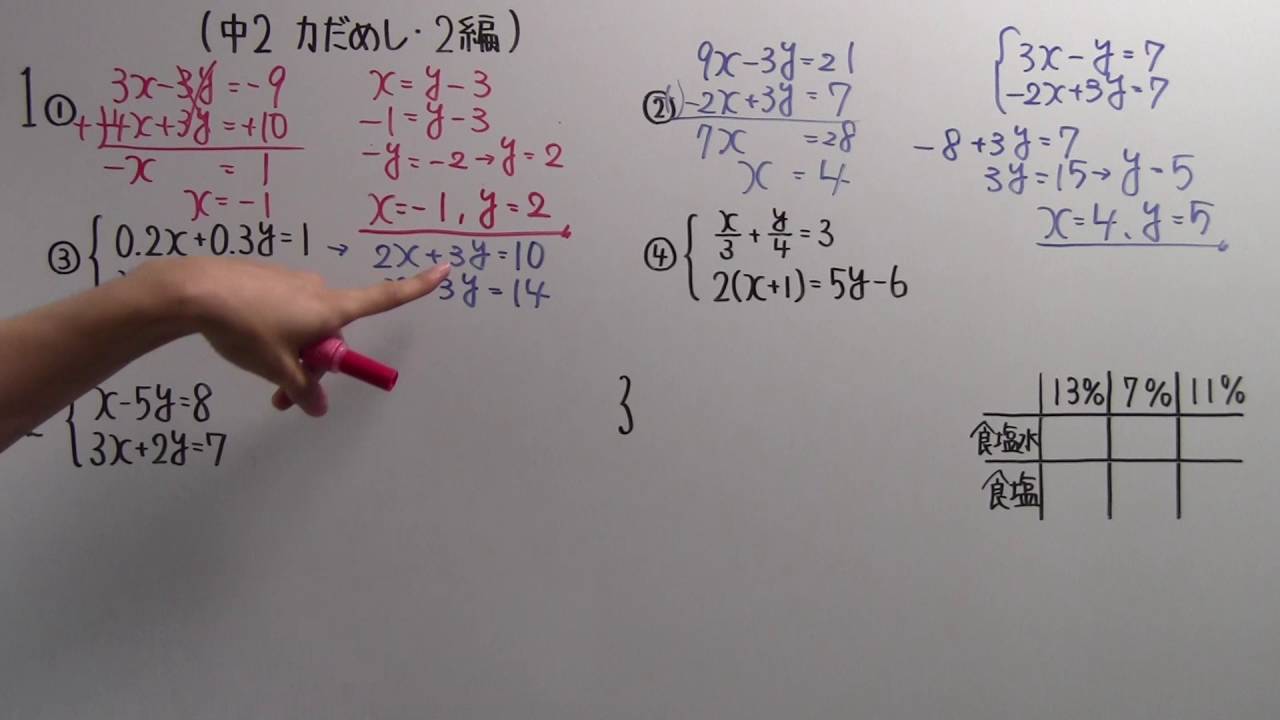 (中2 力だめし・2編)
1
①
3x-3y=-9
+)-4x+3y=+10
-x = 1
x=-1
x=y-3
-1=y-3
-y=-2→y=2
x=-1, y=2
②
9x-3y=21
+)-2x+3y=7
7x =28
x =4
3x-y=7
-2x+3y=7
-8+3y=7
3y=15→y=5
x=4、y=5
③
0.2x+0.3y=1 →
2x+3y=10
3y=14
④
x/3+y/4=3
2(x+1)=5y-6
x-5y=8
3x+2y=7
3
13% 7% 11%
食塩水
食塩